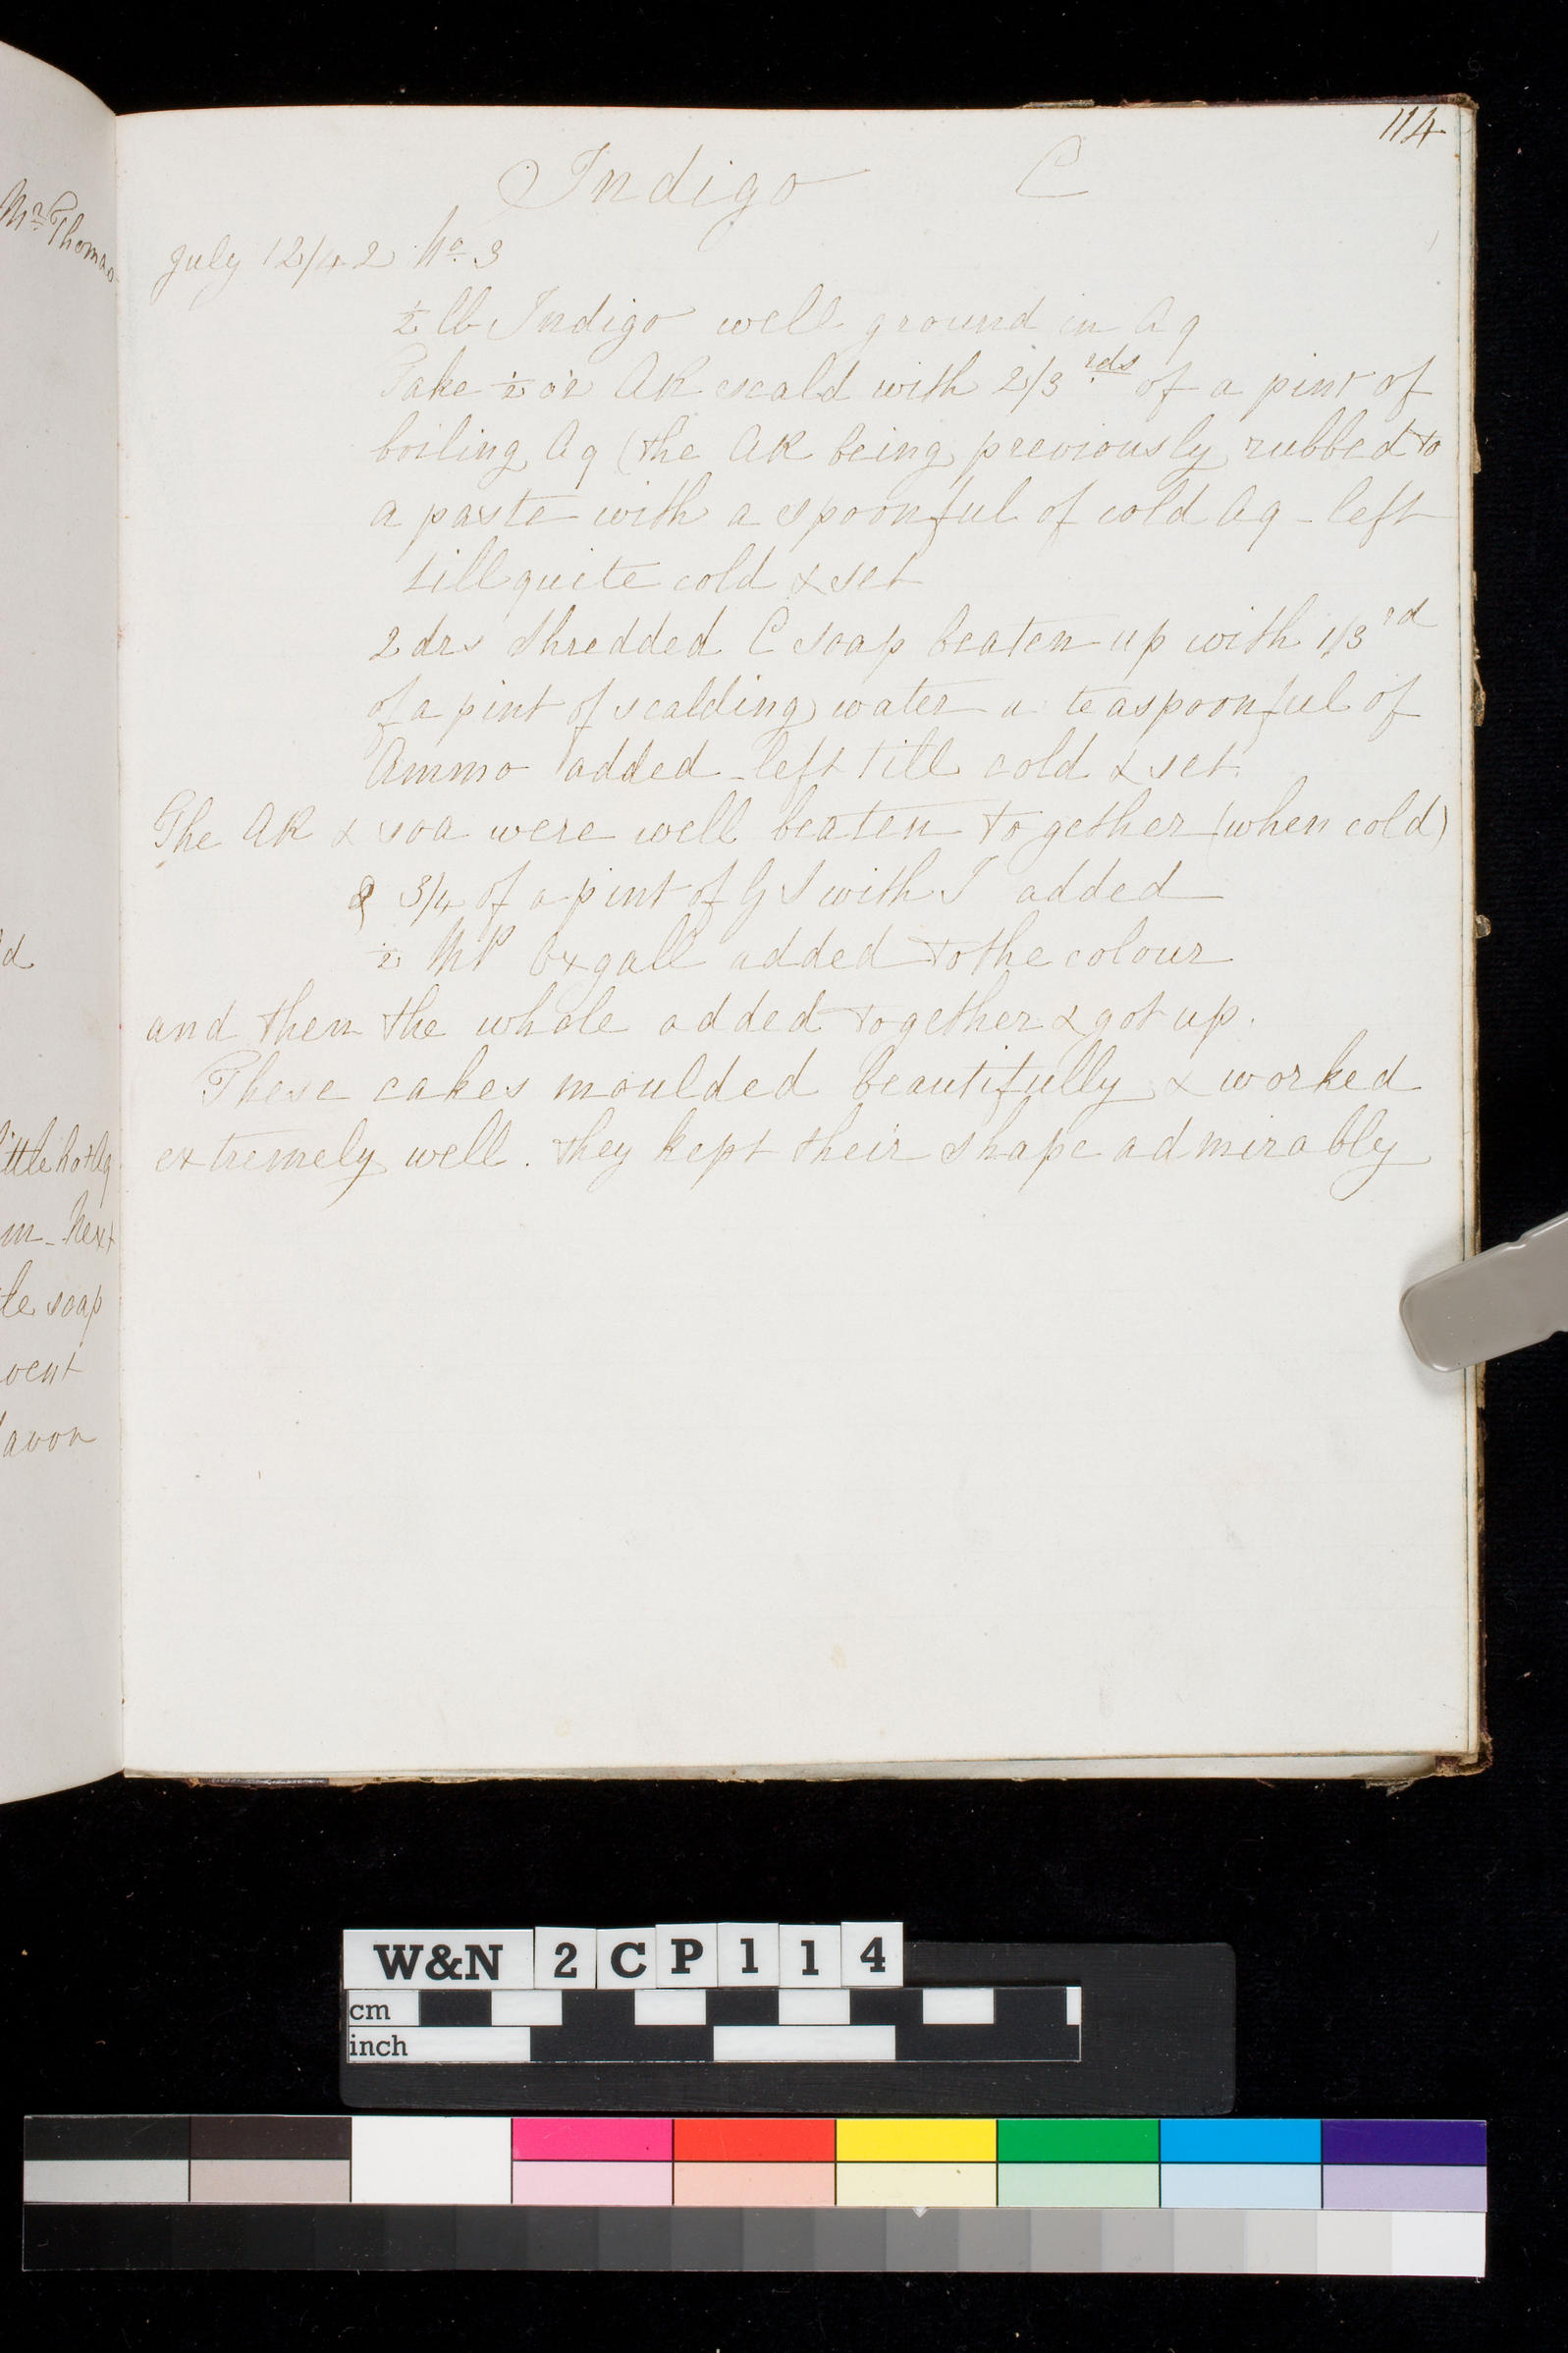 114
Indigo C
July 12/42 No 3
½ lb Indigo well ground in Aq
Take ½ oz AR scald with 2/3 rds of a pint of
boiling Aq (the AR being previously rubbed to
a paste with a spoonful of cold Aq - left
till quite cold & set
2 drs shredded C soap beaten up with 1/3 rd
of a pint of scalding water a teaspoonful of
Ammo added - left till cold & set.
The AR & soa were well beaten together (when cold)
& 3/4 of a pint of G S with T added
½ MP Oxgall added to the colour
and then the whole added together & got up.
These cakes moulded beautifully & worked
extremely well. they kept their shape admirably
Mr Thomas
d
little hot Aq
m - Next
le soap
vent
avon
W&N 2 C P 1 1 4
cm
inch